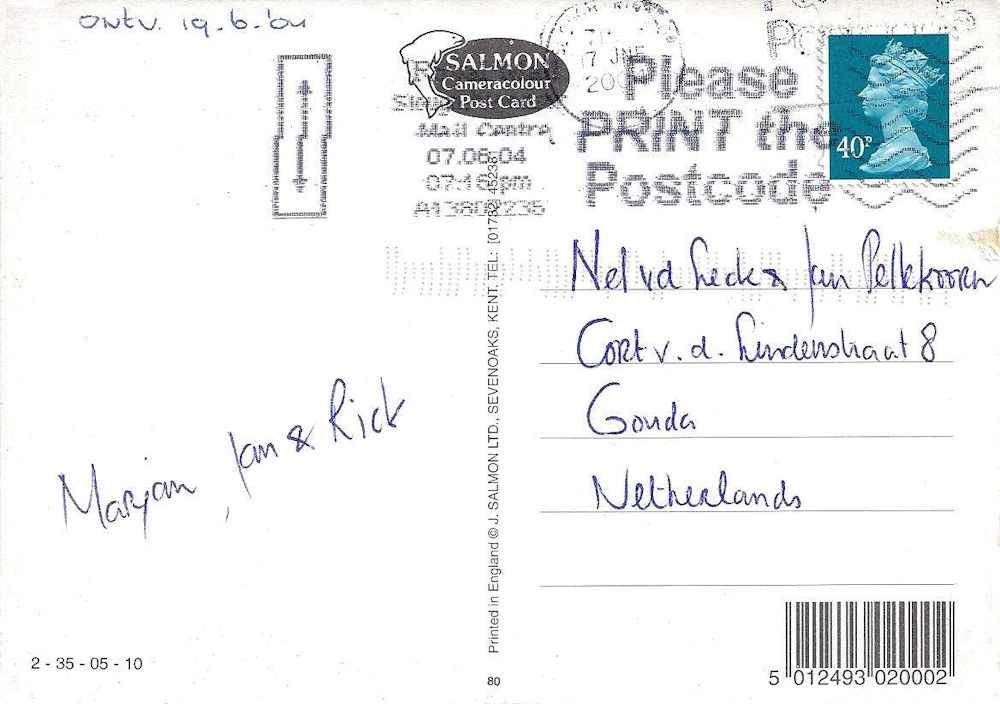 Ontv. 19.6.'04
SALMON
Cameracolour
Post Card
17 JNE
Please
PRINT the
Postcode
40P
Mail Centre
07.06.04
07:16 pm
Nel v d Leck & Jan Pellekoorn
Cort v. d. Lindenstraat 8
Gouda
Netherlands
Marjan, Jan & Rick
Printed in England © J. SALMON LTD. SEVENOAKS, KENT. TEL: [01732] 452381
2 - 35 - 05 - 10
80
5 012493 020002